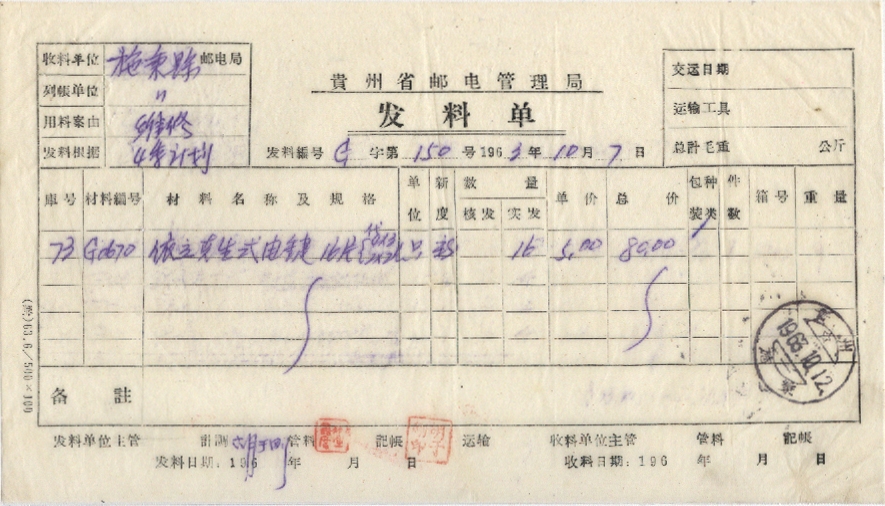 收料单位 施秉縣 邮电局
列帳单位 〃
用料案由 维修
发料根据 4季计划
貴州省邮电管理局
发料单
发料編号 G 字第 150 号 1963年10月7日
交运日期
运输工具
总計毛重 公斤
庫号 材料編号 材料名称及規格 单位 新度 数量 核发 实发 单价 总价 包装种类 件数 箱号 重量
73 G0670 式电键 只 新 16 5.00 80.00
备註
(黔)63.6/500×100
1963.10.12
发料单位主管 計調 管料 記帳 运输 收料单位主管 管料 記帳
发料日期:196 年 月 日 收料日期:196 年 月 日